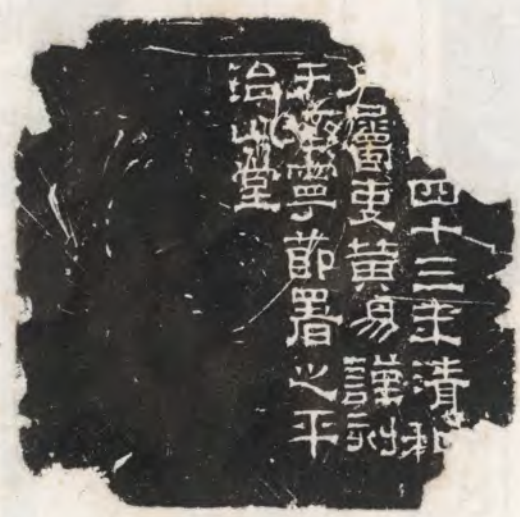 四十三年清和
屬吏黃易謹刻
于濟寧節署之平
治山堂